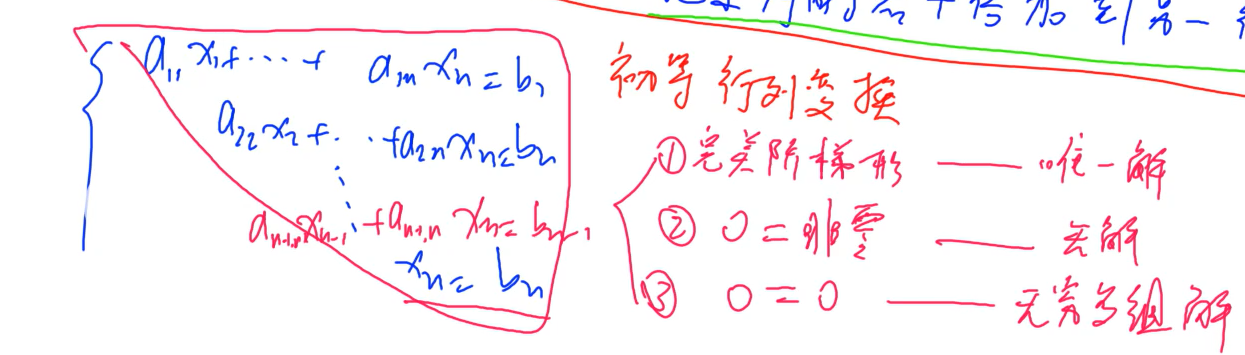 行加到另一
a₁₁x₁+⋯+ a₁ₙxₙ=b₁
a₂₂x₂+⋯+a₂ₙxₙ=bₙ
aₙ₋₁,ₙ₋₁xₙ₋₁+aₙ₋₁,ₙxₙ=bₙ₋₁
xₙ=bₙ
初等行列变换
①完美阶梯形 —— 唯一解
② 0=非零 —— 无解
③ 0=0 —— 无穷多组解